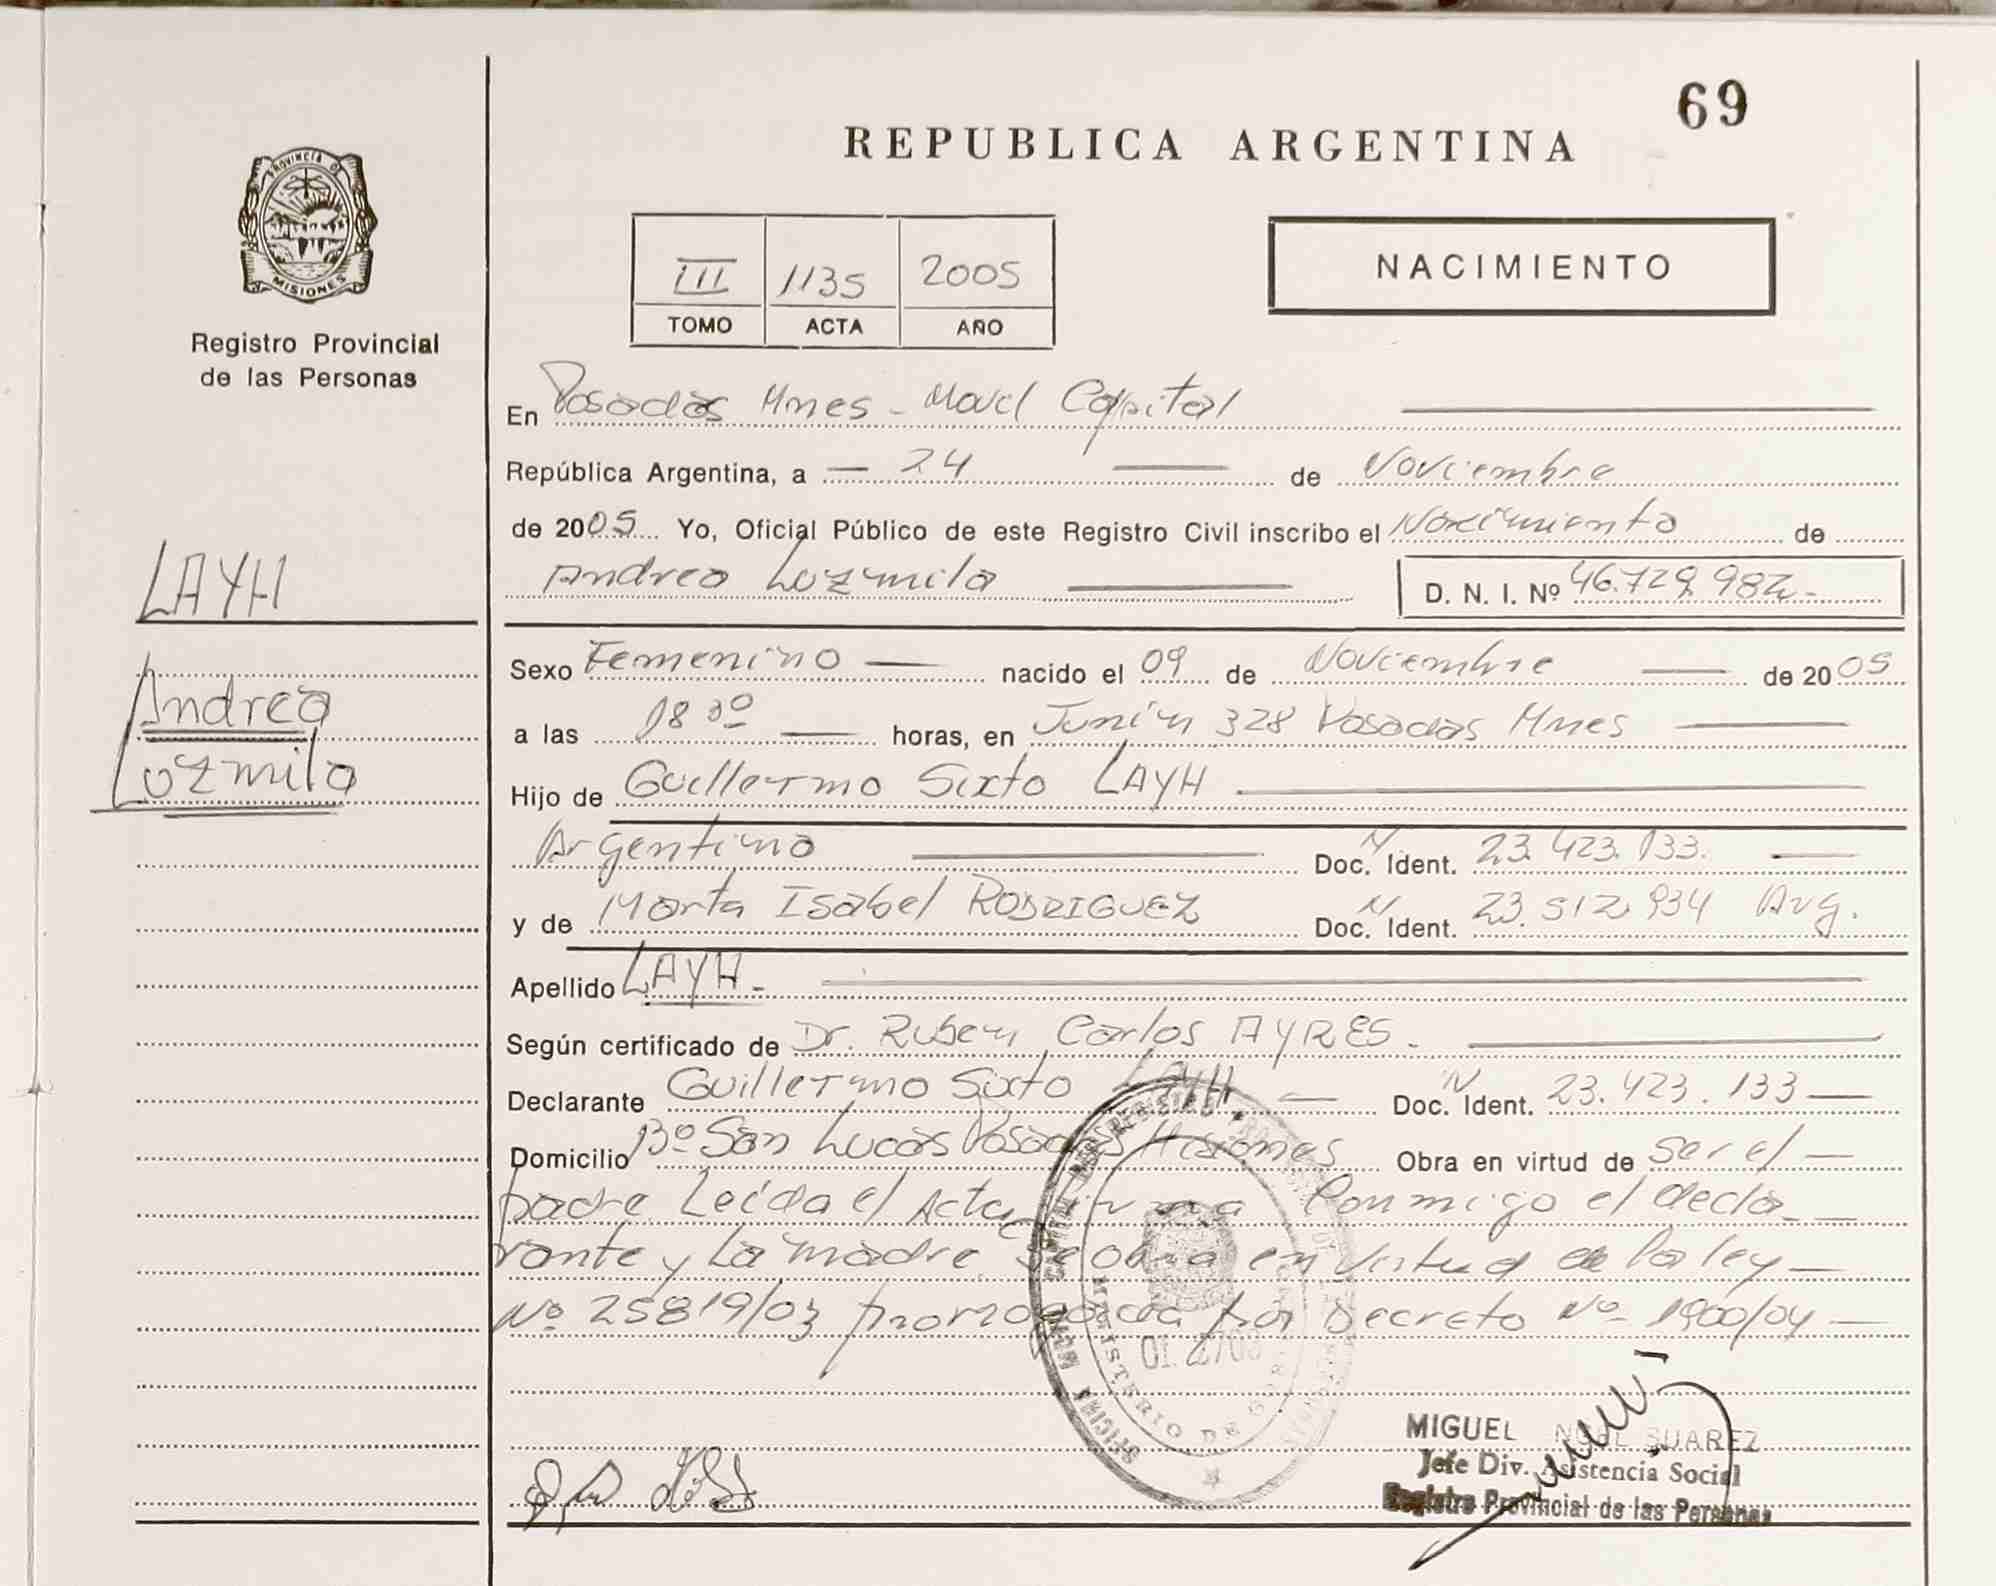 69
REPUBLICA ARGENTINA
PROVINCIA DE
MISIONES
Registro Provincial
de las Personas
III 1135 2005
TOMO ACTA AÑO
NACIMIENTO
En Posadas Mnes - Movil Capital
República Argentina, a 24 de Noviembre
de 2005 Yo, Oficial Público de este Registro Civil inscribo el Nacimiento de
Andrea Luzmila D. N. I. Nº 46.729.982.-
LAYH
Andrea
Luzmila
Sexo Femenino nacido el 09 de Noviembre de 2005
a las 18 30 horas, en Junín 328 Posadas Mnes
Hijo de Guillermo Sixto LAYH
Argentino Doc. N Ident. 23.423.133.
y de Marta Isabel RODRIGUEZ Doc. N Ident. 23.512.934 Arg.
Apellido LAYH.-
Según certificado de Dr. Ruben Carlos AYRES.
Declarante Guillermo Sixto LAYH Doc. N Ident. 23.423.133
Domicilio Bº San Lucas Posadas Misiones Obra en virtud de ser el
padre Leída el Acta firma Conmigo el decla
rante y La madre Se obra en virtud de la ley
Nº 25819/03 prorrogada por Decreto Nº 1900/04
MINISTERIO DE
MIGUEL NOEL SUAREZ
Jefe Div. Asistencia Social
Registro Provincial de las Personas